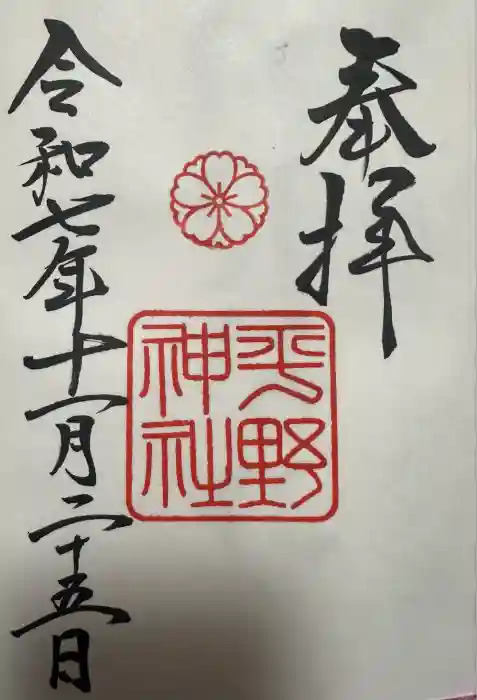 奉拝
平野
神社
令和七年十一月二十五日